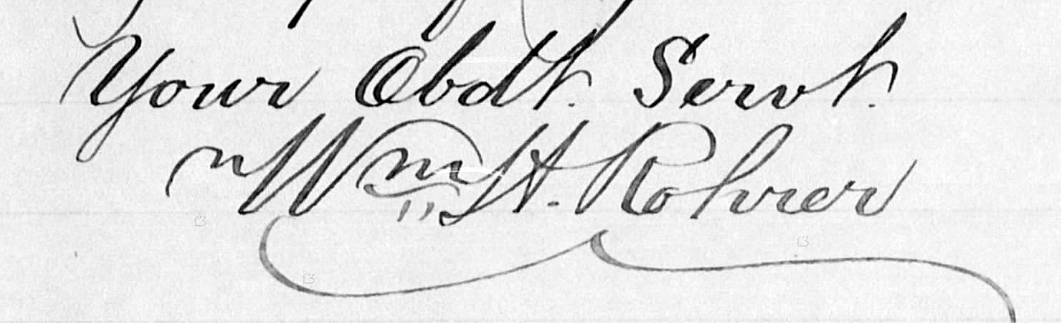 Your Obdt. Servt.
Wm H. Rohrer